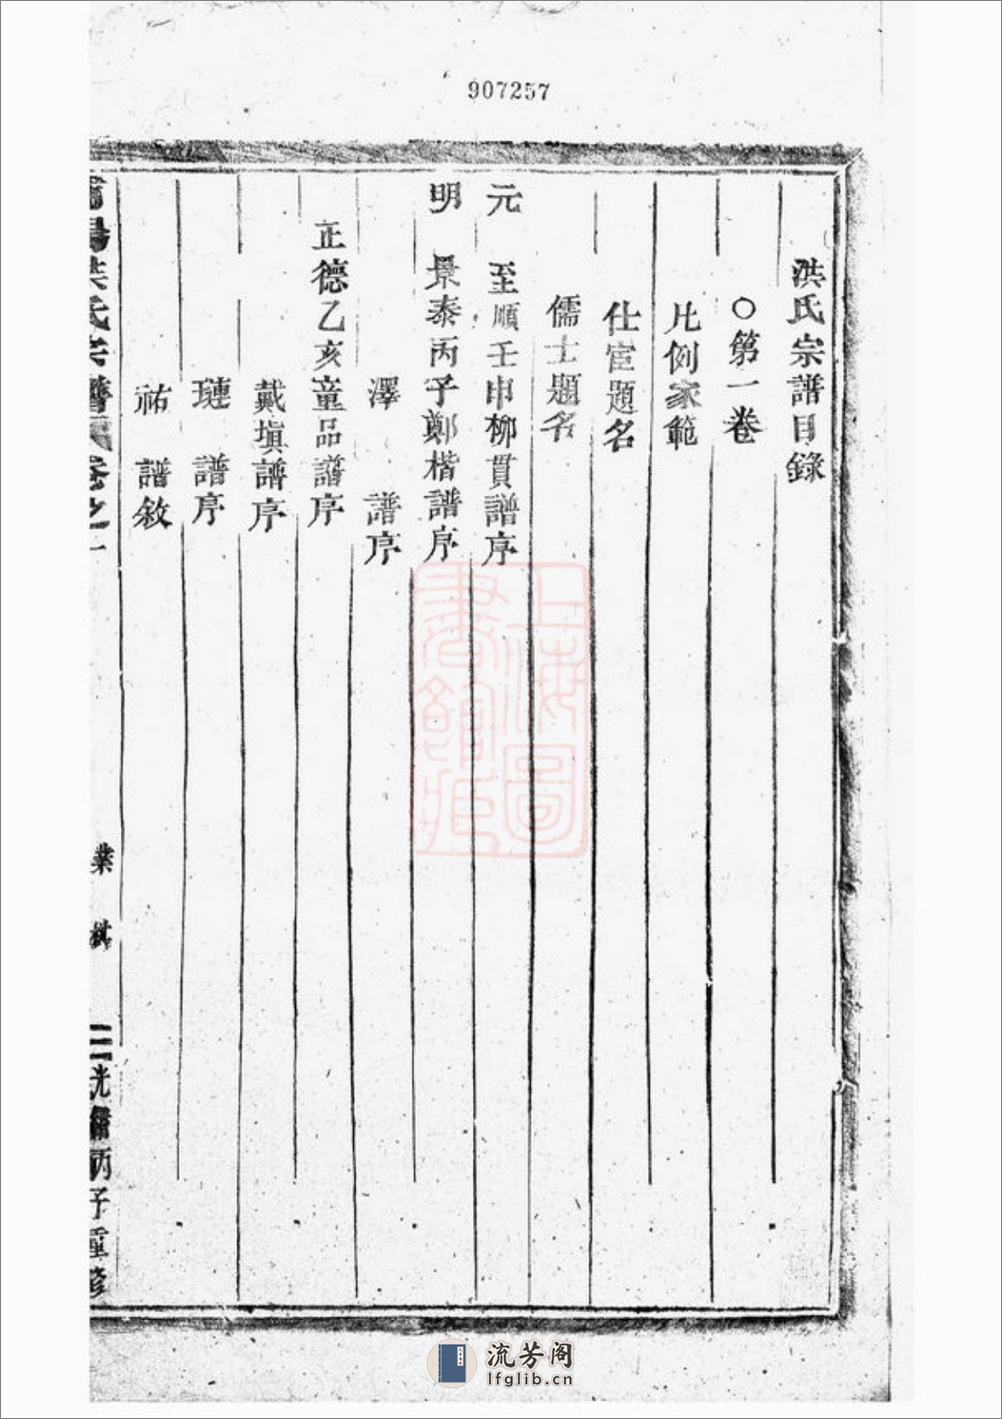 907257
洪氏宗譜目錄
○第一卷
凡例家範
仕宦題名
儒士題名
元 至順壬申柳貫譜序
明 景泰丙子鄭楷譜序
澤 譜序
正德乙亥童品譜序
戴塤譜序
璉 譜序
祐 譜敘
氏宗譜 卷之一
光緒丙子重修
上海圖書館藏
流芳阁
lfglib.cn